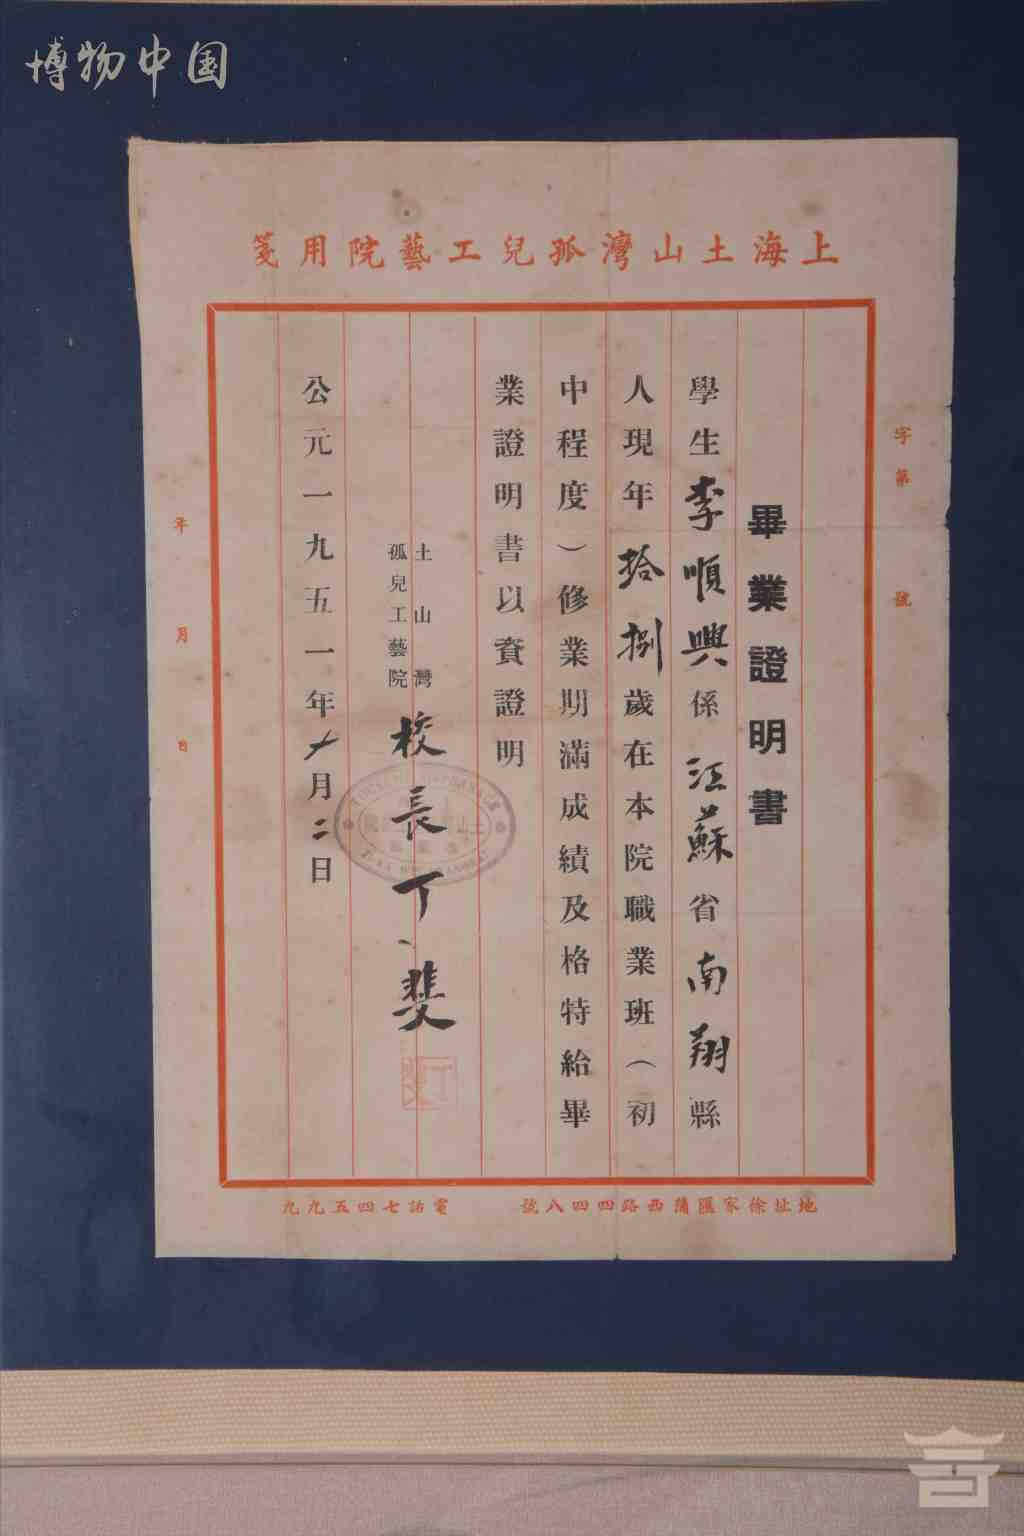 博物中国
上海土山灣孤兒工藝院用箋
字第　號
畢業證明書
學生李順興係江蘇省南翔縣
人現年拾捌歲在本院職業班（初
中程度）修業期滿成績及格特給畢
業證明書以資證明
土山灣
孤兒工藝院
校長丁斐
公元一九五一年十月二日
年月日
地址徐家匯蒲西路四四八號
電話七四五九九